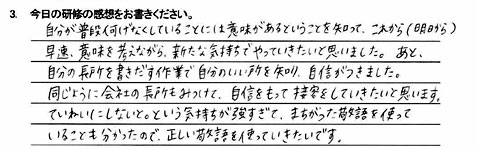 3. 今日の研修の感想をお書きください。
自分が普段何げなくしていることには意味があるということを知って、これから(明日から)
早速、意味を考えながら、新たな気持ちでやっていきたいと思いました。 あと、
自分の長所を書きだす作業で自分のいい所を知り、自信がつきました。
同じように会社の長所もみつけて、自信をもって接客をしていきたいと思います。
ていねいにしないと。という気持ちが強すぎて、まちがった敬語を使って
いることも分かったので、正しい敬語を使っていきたいです。